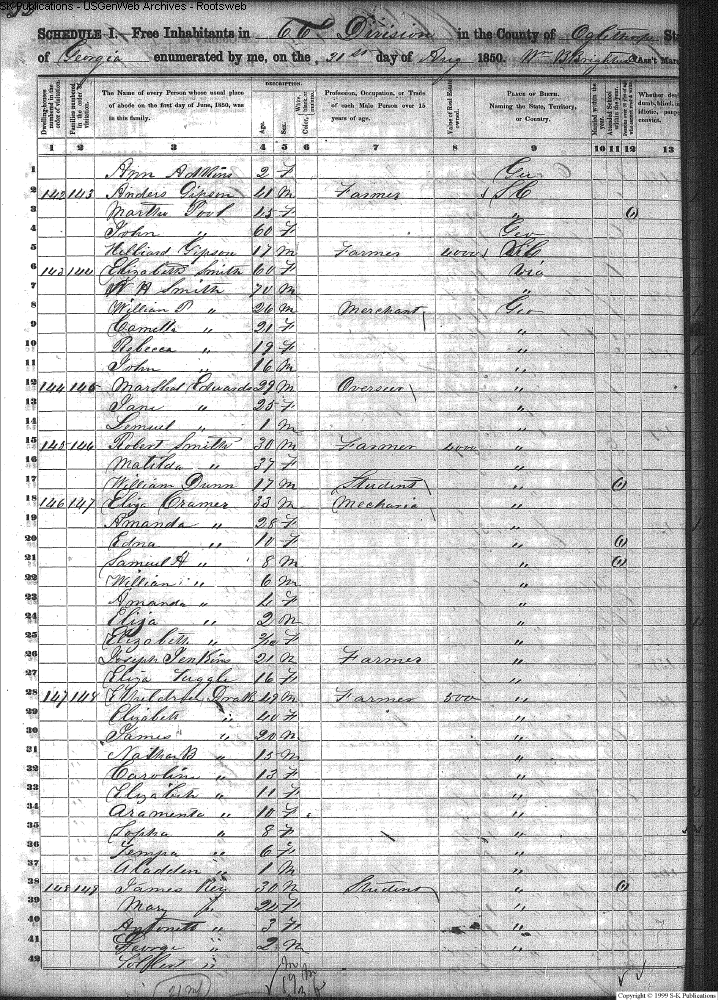 S-K Publications - USGenWeb Archives - Rootsweb
SCHEDULE I.- Free Inhabitants in 66th Division in the County of Oglethorpe
of Georgia enumerated by me, on the 21st day of Aug 1850. Wm B Ass't Mars
DESCRIPTION.
Dwelling-houses numbered in the order of visitation.
Families numbered in the order of visitation.
The Name of every Person whose usual place of abode on the first day of June, 1850, was in this family.
Age.
Sex.
Color,
Profession, Occupation, or Trade of each Male Person over 15 years of age.
Value of Real Estate owned.
PLACE OF BIRTH. Naming the State, Territory, or Country.
Married within the year.
1 2 3 4 5 6 7 8 9 10 11 12 13
1 Ann Adkins 2 F Geo
2 142 143 Anders Gipson 41 M Farmer S C
3 Martha Pool 15 F "
4 John " 60 F Geo
5 Hilliard Gipson 17 M Farmer 4000
6 143 144 Elizabeth Smith 60 F Via
7 Smith 70 M "
8 William P " 26 M Merchant Geo
9 " 21 F "
10 Rebecca " 19 F "
11 John " 16 M "
12 144 145 Marshal Edwards 29 M Overseer "
13 Jane " 25 F "
14 Lemuel " 1 M "
15 145 146 Robert Smith 30 M Farmer 4000 "
16 Matilda " 37 F "
17 William Dunn 17 M Student "
18 146 147 Eliza Cramer 33 M Mechanic "
19 Amanda " 28 F "
20 Edna " 10 F "
21 Samuel H " 8 M "
22 William " 6 M "
23 Amanda " 4 F "
24 Eliza " 2 M "
25 Elizabeth " F "
26 Joseph Jenkins 21 M Farmer "
27 Eliza Tuggle 16 F "
28 147 148 Drake 49 M Farmer 500 "
29 Elizabeth " 40 F "
30 James " 20 M "
31 Nathan B " 15 M "
32 Caroline " 13 F "
33 Elizabeth " 11 F "
34 Araminta " 10 F "
35 Sopha " 8 F "
36 Tempa " 6 F "
37 Aladden " 1 M "
38 148 149 James 30 M Student "
39 Mary 24 F "
40 Antonett " 3 F "
41 George " 2 M "
42
Copyright © 1999 S-K Publications